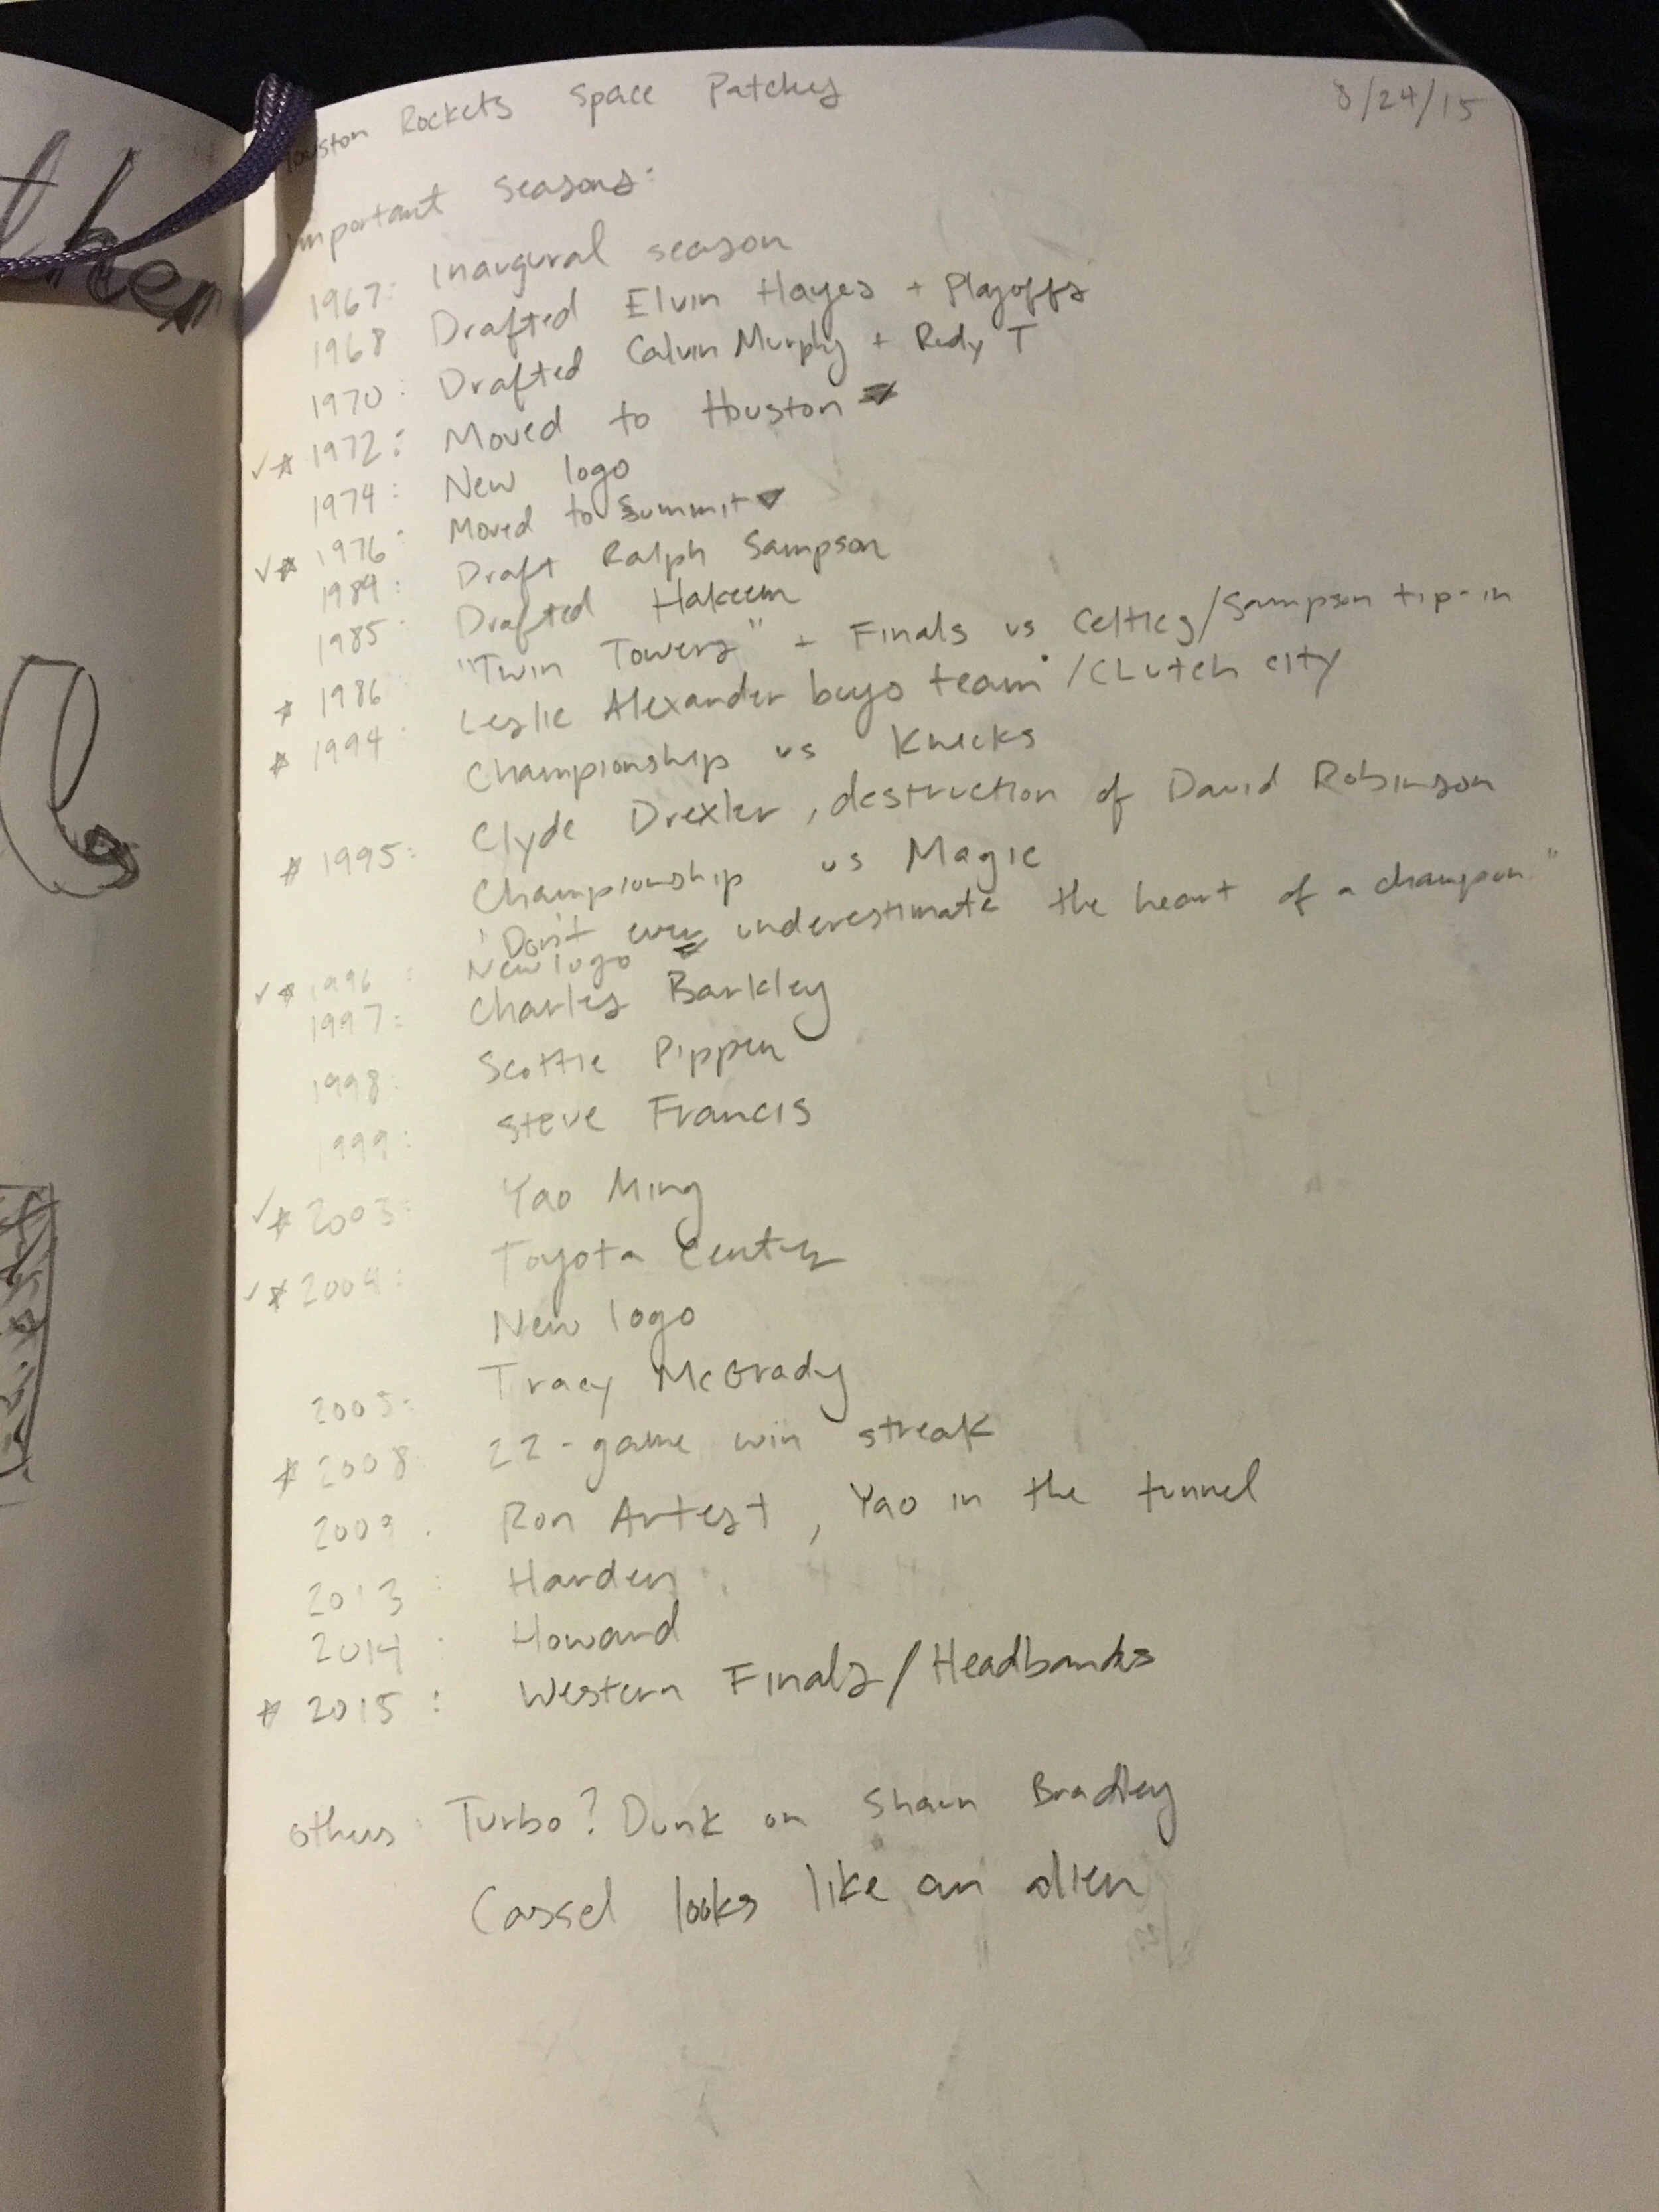 Houston Rockets Space Patches 8/24/15
Important Seasons:
1967: Inaugural season
1968 Drafted Elvin Hayes + Playoffs
1970: Drafted Calvin Murphy + Rudy T
✓☆ 1972: Moved to Houston
1974: New logo
✓☆ 1976: Moved to Summit
1984: Draft Ralph Sampson
1985: Drafted Hakeem
☆ 1986 "Twin Towers" + Finals vs Celtics/Sampson tip-in
☆ 1994: Leslie Alexander buys team /CLutch city
Championship vs Knicks
☆ 1995: Clyde Drexler, destruction of David Robinson
Championship vs Magic
"Don't ever underestimate the heart of a champion."
✓☆ 1996: New logo
1997: Charles Barkley
1998: Scottie Pippen
1999: Steve Francis
✓☆ 2003: Yao Ming
✓☆ 2004: Toyota Center
New logo
2005: Tracy McGrady
☆ 2008 22-game win streak
2009: Ron Artest, Yao in the tunnel
2013: Harden
2014: Howard
☆ 2015: Western Finals/Headbands
others: Turbo? Dunk on Shawn Bradley
Cassel looks like an alien